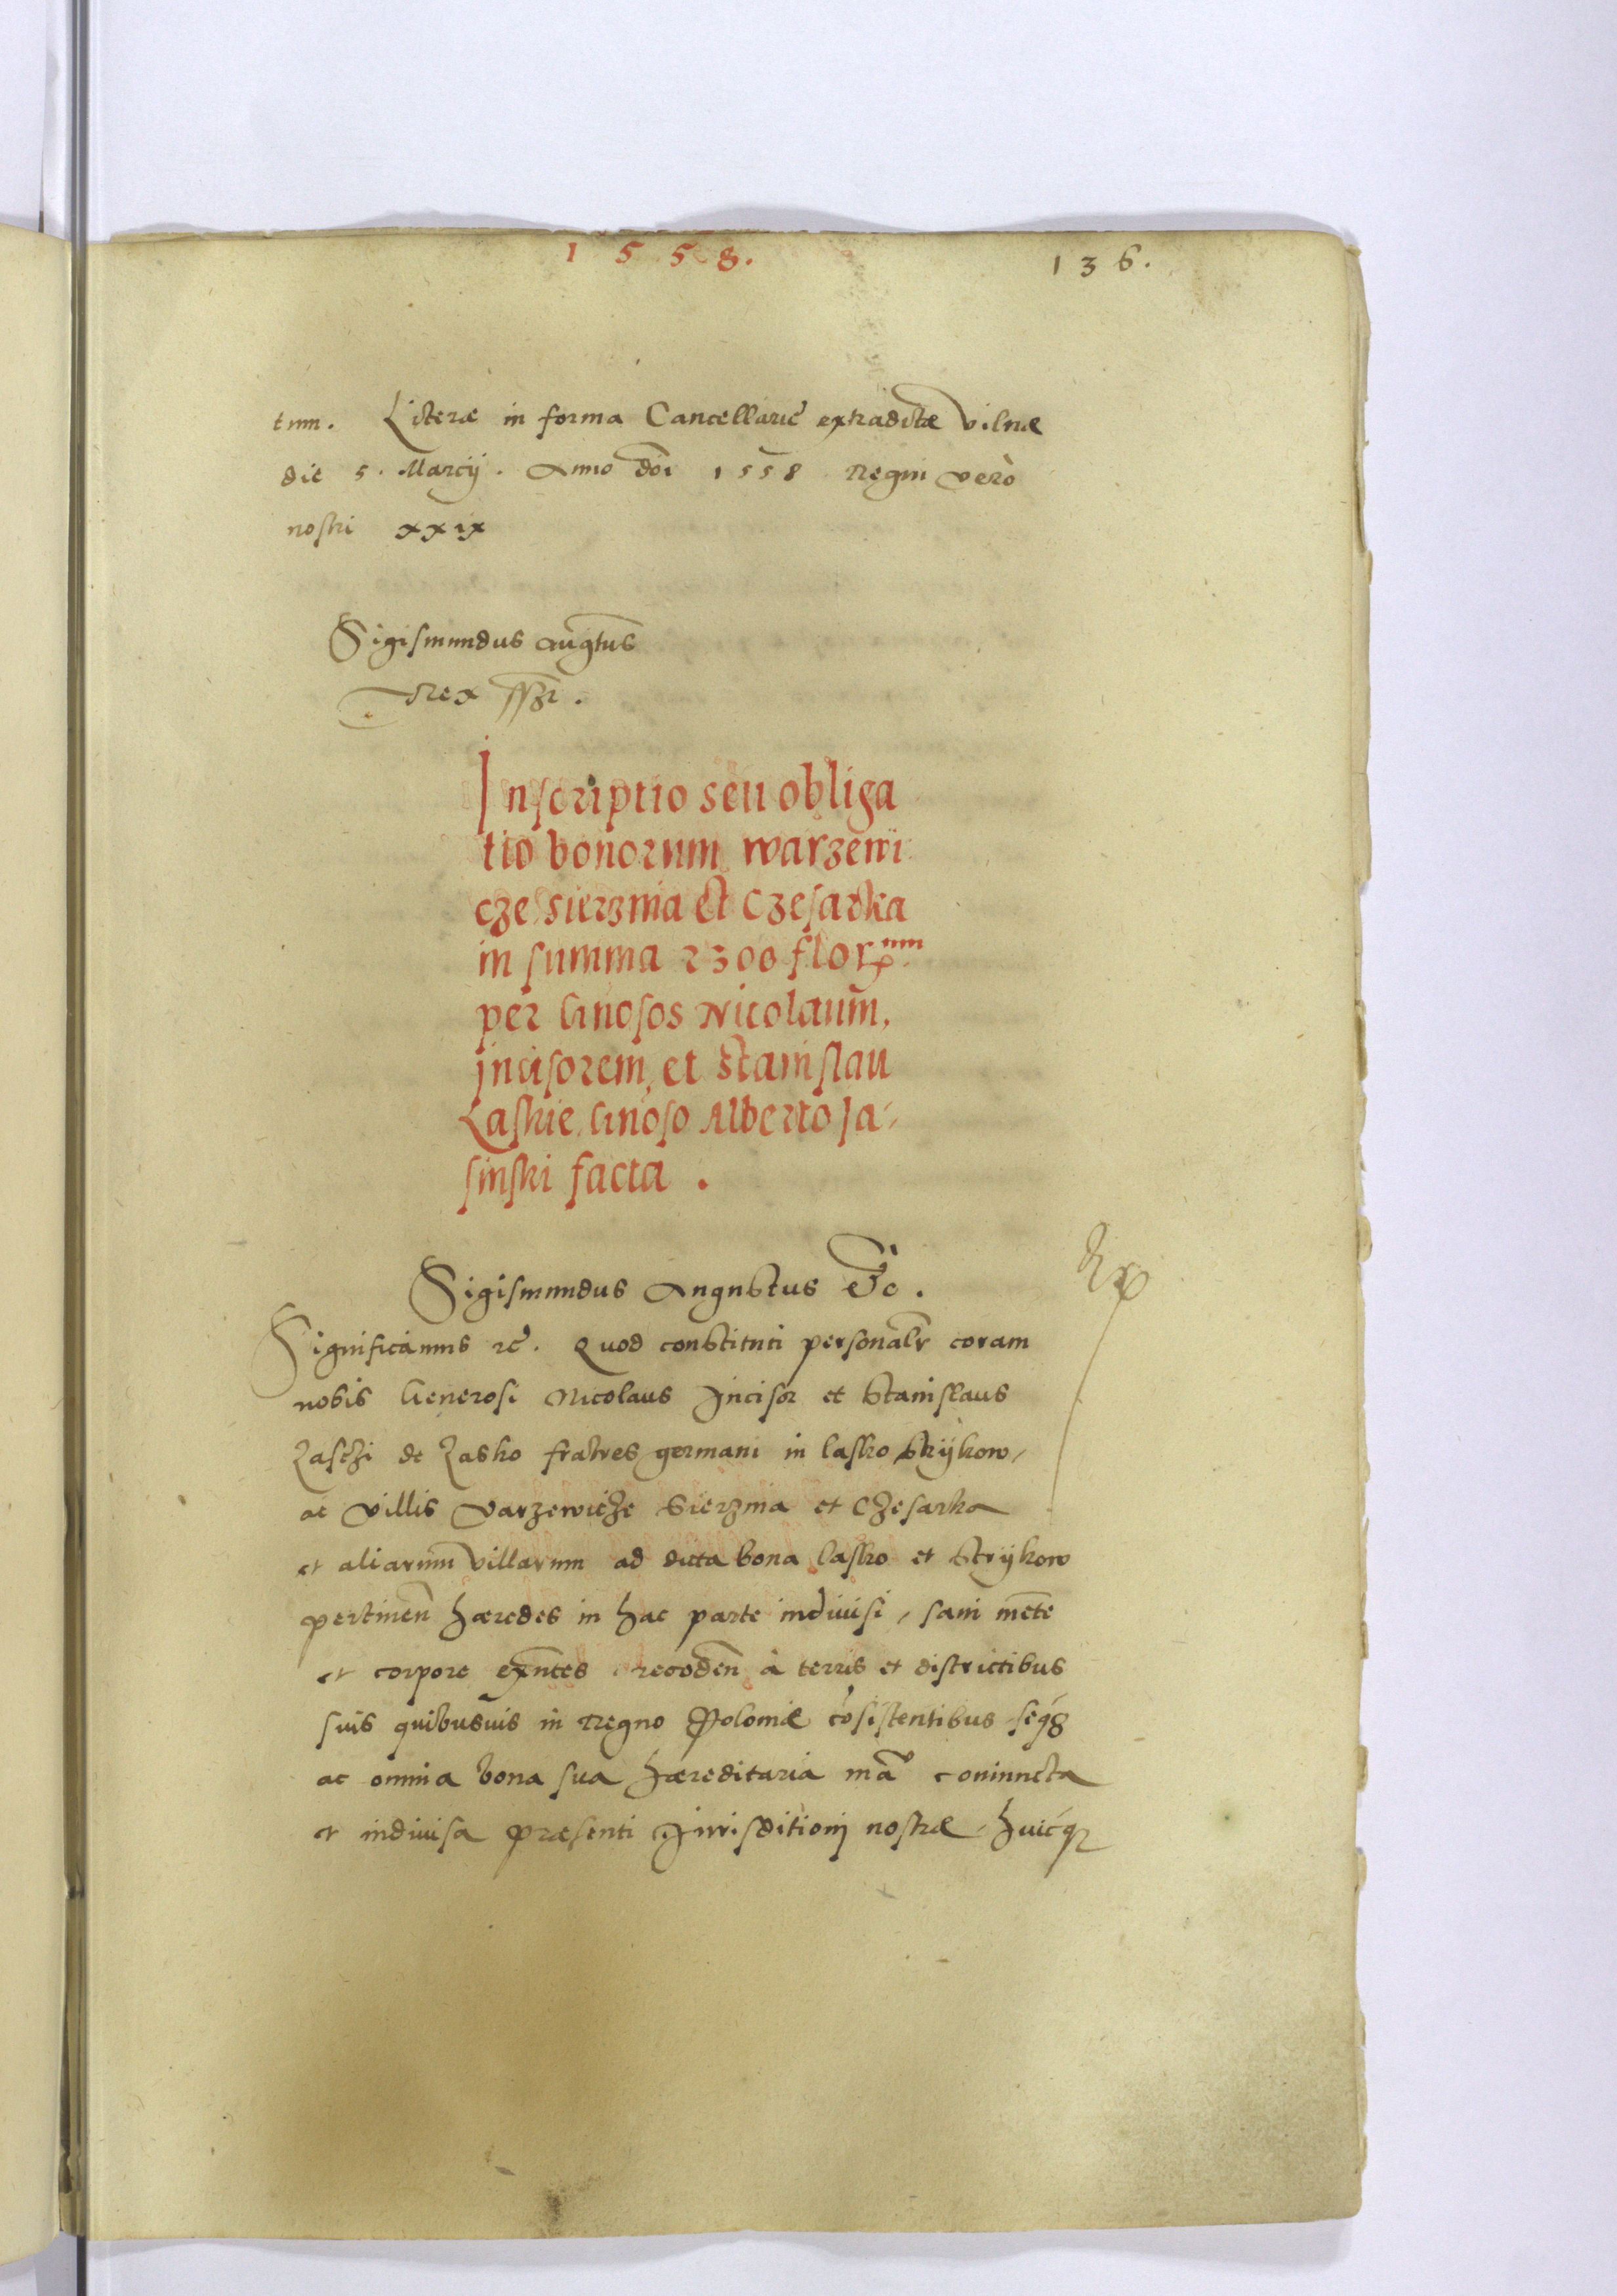 1558.
136.
tum. Literæ in forma Cancellariæ extraditæ Vilnæ
die 5. Marcij. Anno doi 1558 Regni verò
nostri xxix
Sigismundus Augtus
Rex sszt.
Inscriptio seu obliga
tio bonorum warzewi
cze sierznia et Czesarka
in summa 2300 florum
per Gnosos Nicolaum,
incisorem, et Stanislau
Laskie Gnoso Alberto Ja-
sinski facta.
Sigismundus Augustus Etc.
Significamus etc. Quod constituti personalr coram
nobis Generosi Nicolaus Incisor et Stanislaus
Laschi de Lasko fratres germani in Lasko Strijkow,
ac villis Varzewicze Sierznia et Czesarka
et aliarum villarum ad dicta bona Lasko et Strijkow
pertinen hæredes in hac parte indiuisi, sani mete
et corpore exntes recoden à terris et districtibus
suis quibusuis in Regno Poloniæ cosistentibus seq3
ac omnia bona sua hæreditaria ma coniuncta
et indiuisa præsenti Jurisditioni nostræ huicq